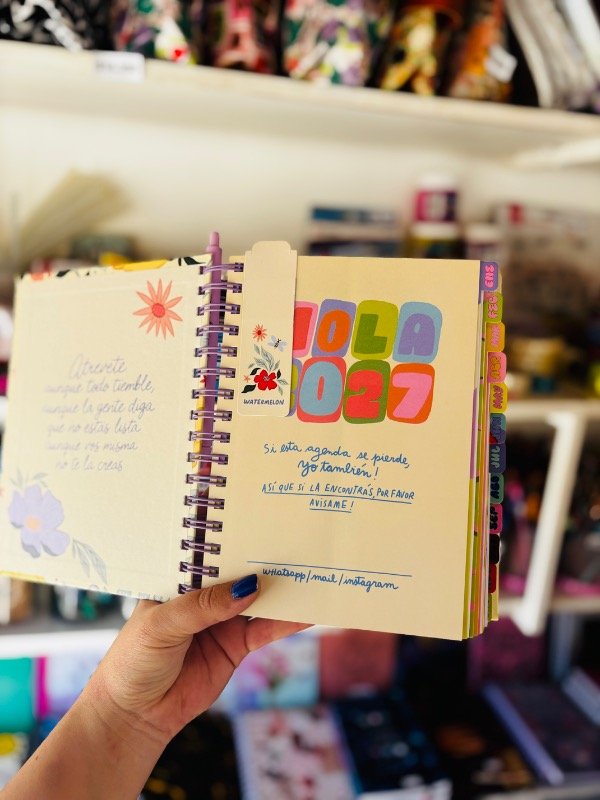 Atrevete
aunque todo tiemble,
aunque la gente diga
que no estás lista
aunque vos misma
no te la creas
WATERMELON
HOLA
2027
Si esta agenda se pierde,
yo también!
ASÍ QUE SI LA ENCONTRÁS, POR FAVOR
AVISAME!
whatsapp/mail/instagram
ENE
FEB
MAR
ABR
MAY
JUN
JUL
AGO
SEP